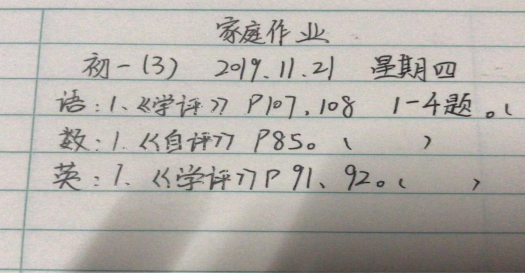 家庭作业
初一(3) 2019.11.21 星期四
语:1、《学评》P107、108 1-4题。(
数:1.《自评》P85。( )
英:1.《学评》P91、92。( )